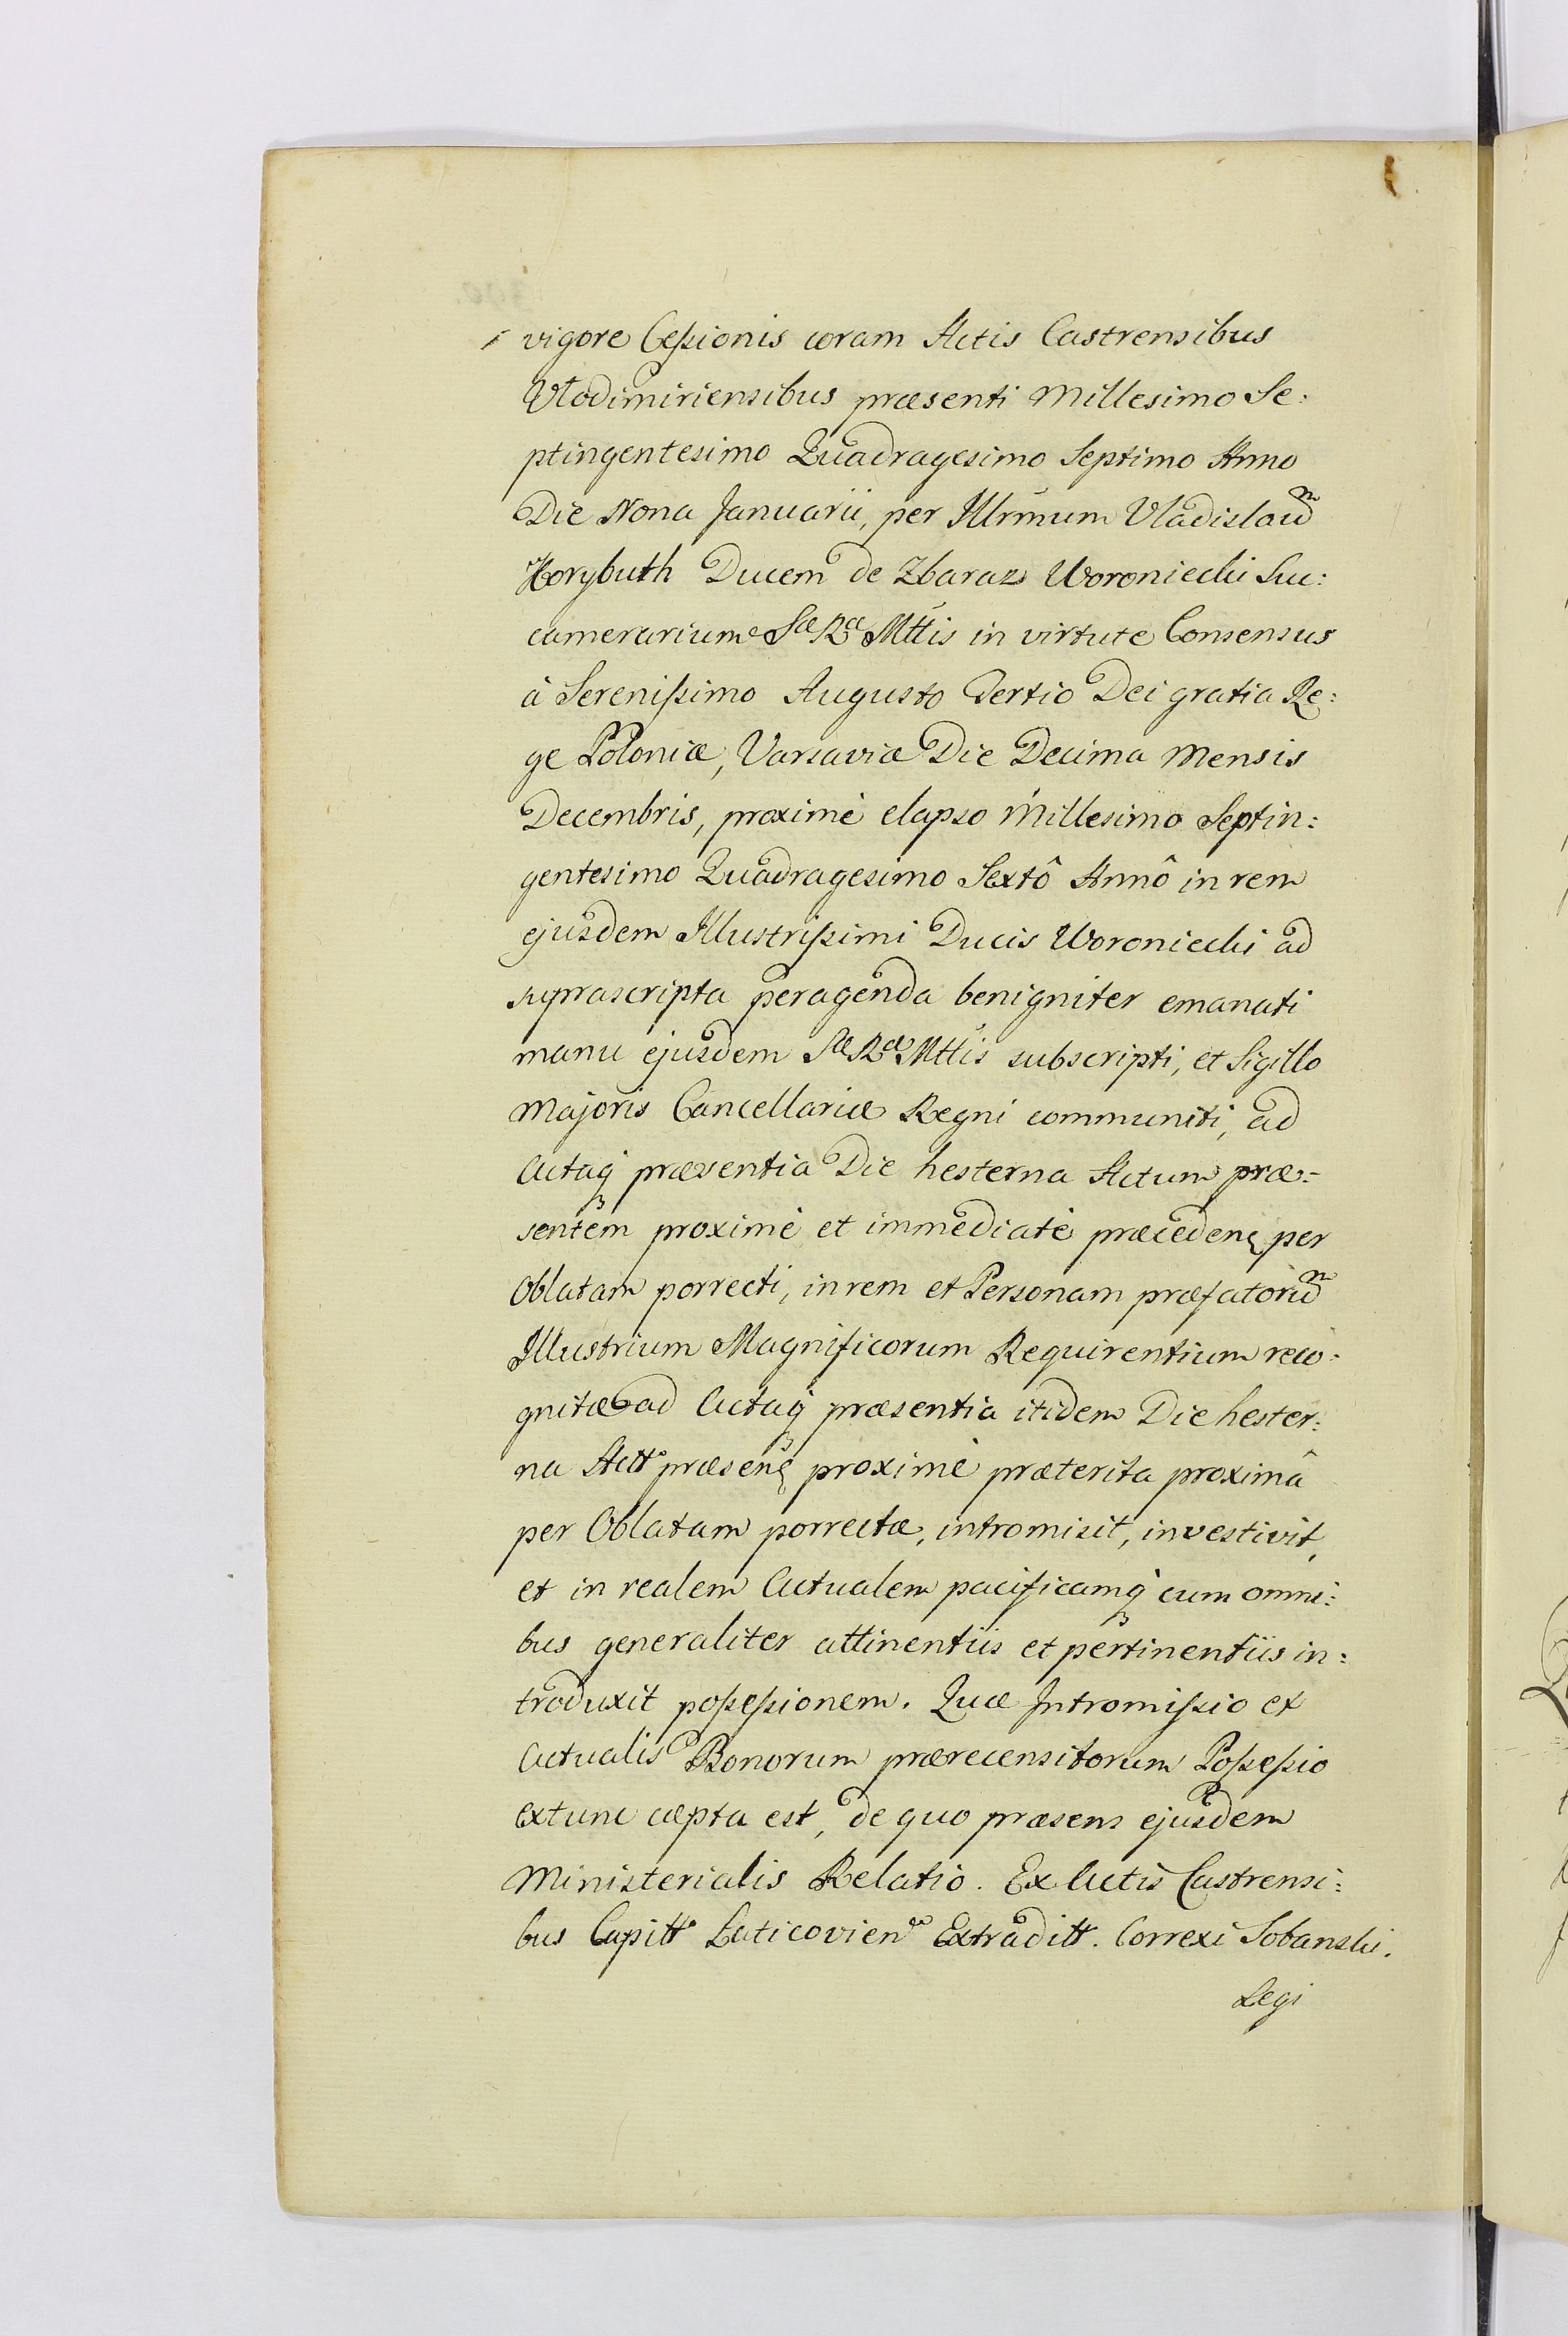 vigore Cessionis coram Actis Castrensibus
Vlodimiriensibus præsenti Millesimo Se:
ptingentesimo Quadragesimo Septimo Anno
Die Nona Januarii, per Illrmum Vladislaum
Korybuth Ducem de Zbaraz Woroniecki Suc:
camerarium Sæ Ræ Mttis in virtute Consensus
à Serenissimo Augusto Tertio Dei gratia Re:
ge Poloniæ, Varsaviæ Die Decima Mensis
Decembris, proximè elapso Millesimo Septin:
gentesimo Quadragesimo Sextô Annô in rem
ejusdem Illustrissimi Ducis Woroniecki ad
suprascripta peragenda benigniter emanati
manu ejusdem Sæ Ræ Mttis subscripti, et Sigillo
Majoris Cancellariæ Regni communiti, ad
Actaq præsentia Die hesterna Actum præ:
sentem proximè et immediatè præceden per
Oblatam porrecti, in rem et Personam præfatorum
Illustrium Magnificorum Requirentium reco:
gnitæ ad Actaq præsentia itidem Die hester:
na Actt præsen proximè præterita proximâ
per Oblatam porrectæ, intromisit, investivit,
et in realem Actualem pacificamq cum omni:
bus generaliter attinentiis et pertinentiis in:
troduxit possessionem. Quæ Intromissio et
Actualis Bonorum prærecensitorum Possessio
extunc cæpta est, de quo præsens ejusdem
Ministerialis Relatio. Ex Actis Castrensi:
bus Capitt Laticovien Extraditt. Correxi Sobanski.
Legi